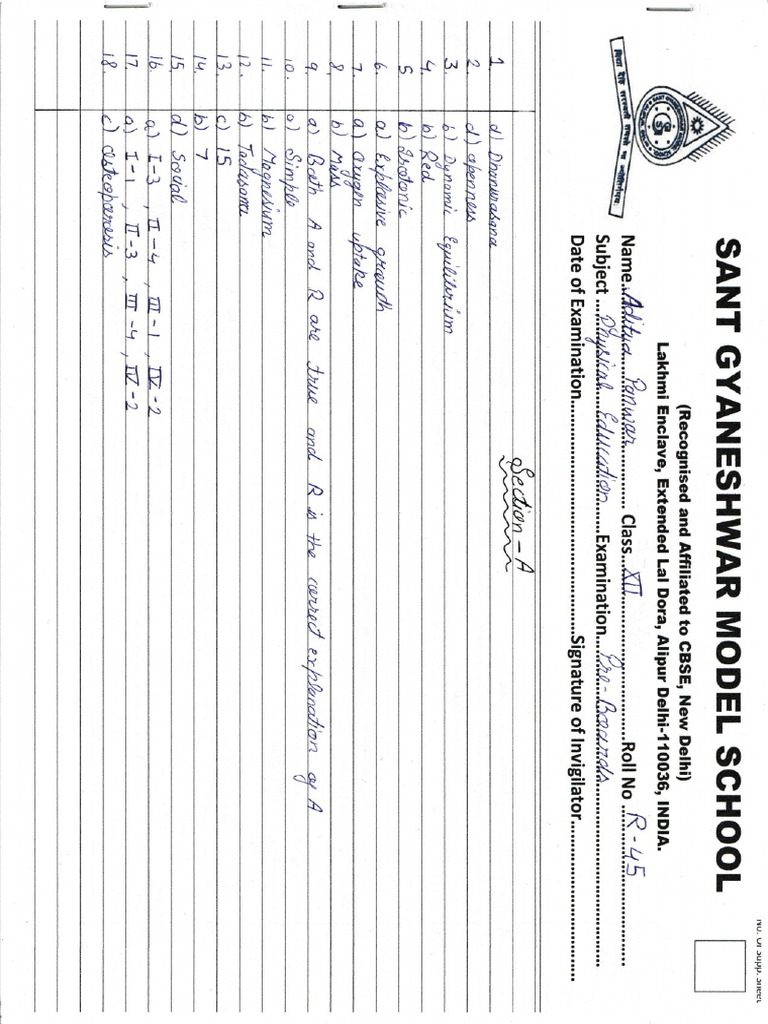 No. Of Supp. Sheet
SANT GYANESHWAR MODEL SCHOOL
(Recognised and Affiliated to CBSE, New Delhi)
Lakhmi Enclave, Extended Lal Dora, Alipur Delhi-110036, INDIA.
Name Aditya Panwar Class XII Roll No R-45
Subject Physical Education Examination Pre-Boards
Date of Examination Signature of Invigilator
Section-A
1. d) Dhanurasana
2. d) openness
3. b) Dynamic Equilibrium
4. b) Red
5. b) Isotonic
6. a) Explosive growth
7. a) Oxygen uptake
8. b) Mass
9. a) Both A and R are true and R is the correct explanation of A
10. a) Simple
11. b) Magnesium
12. b) Tadasana
13. c) 15
14. b) 7
15. d) Social
16. a) I-3, II-4, III-1, IV-2
17. a) I-1, II-3, III-4, IV-2
18. c) Osteoporosis